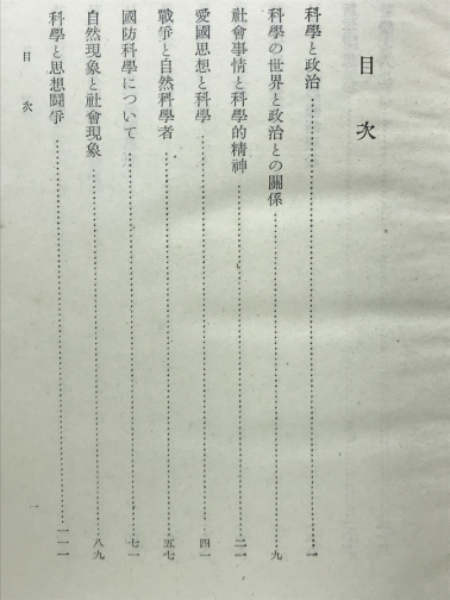 目次
科學と政治……………一
科學の世界と政治との關係……………九
社會事情と科學的精神……………二一
愛國思想と科學……………四一
戰爭と自然科學者……………五七
國防科學について……………七一
自然現象と社會現象……………八九
科學と思想鬪爭……………一一一
目次
一